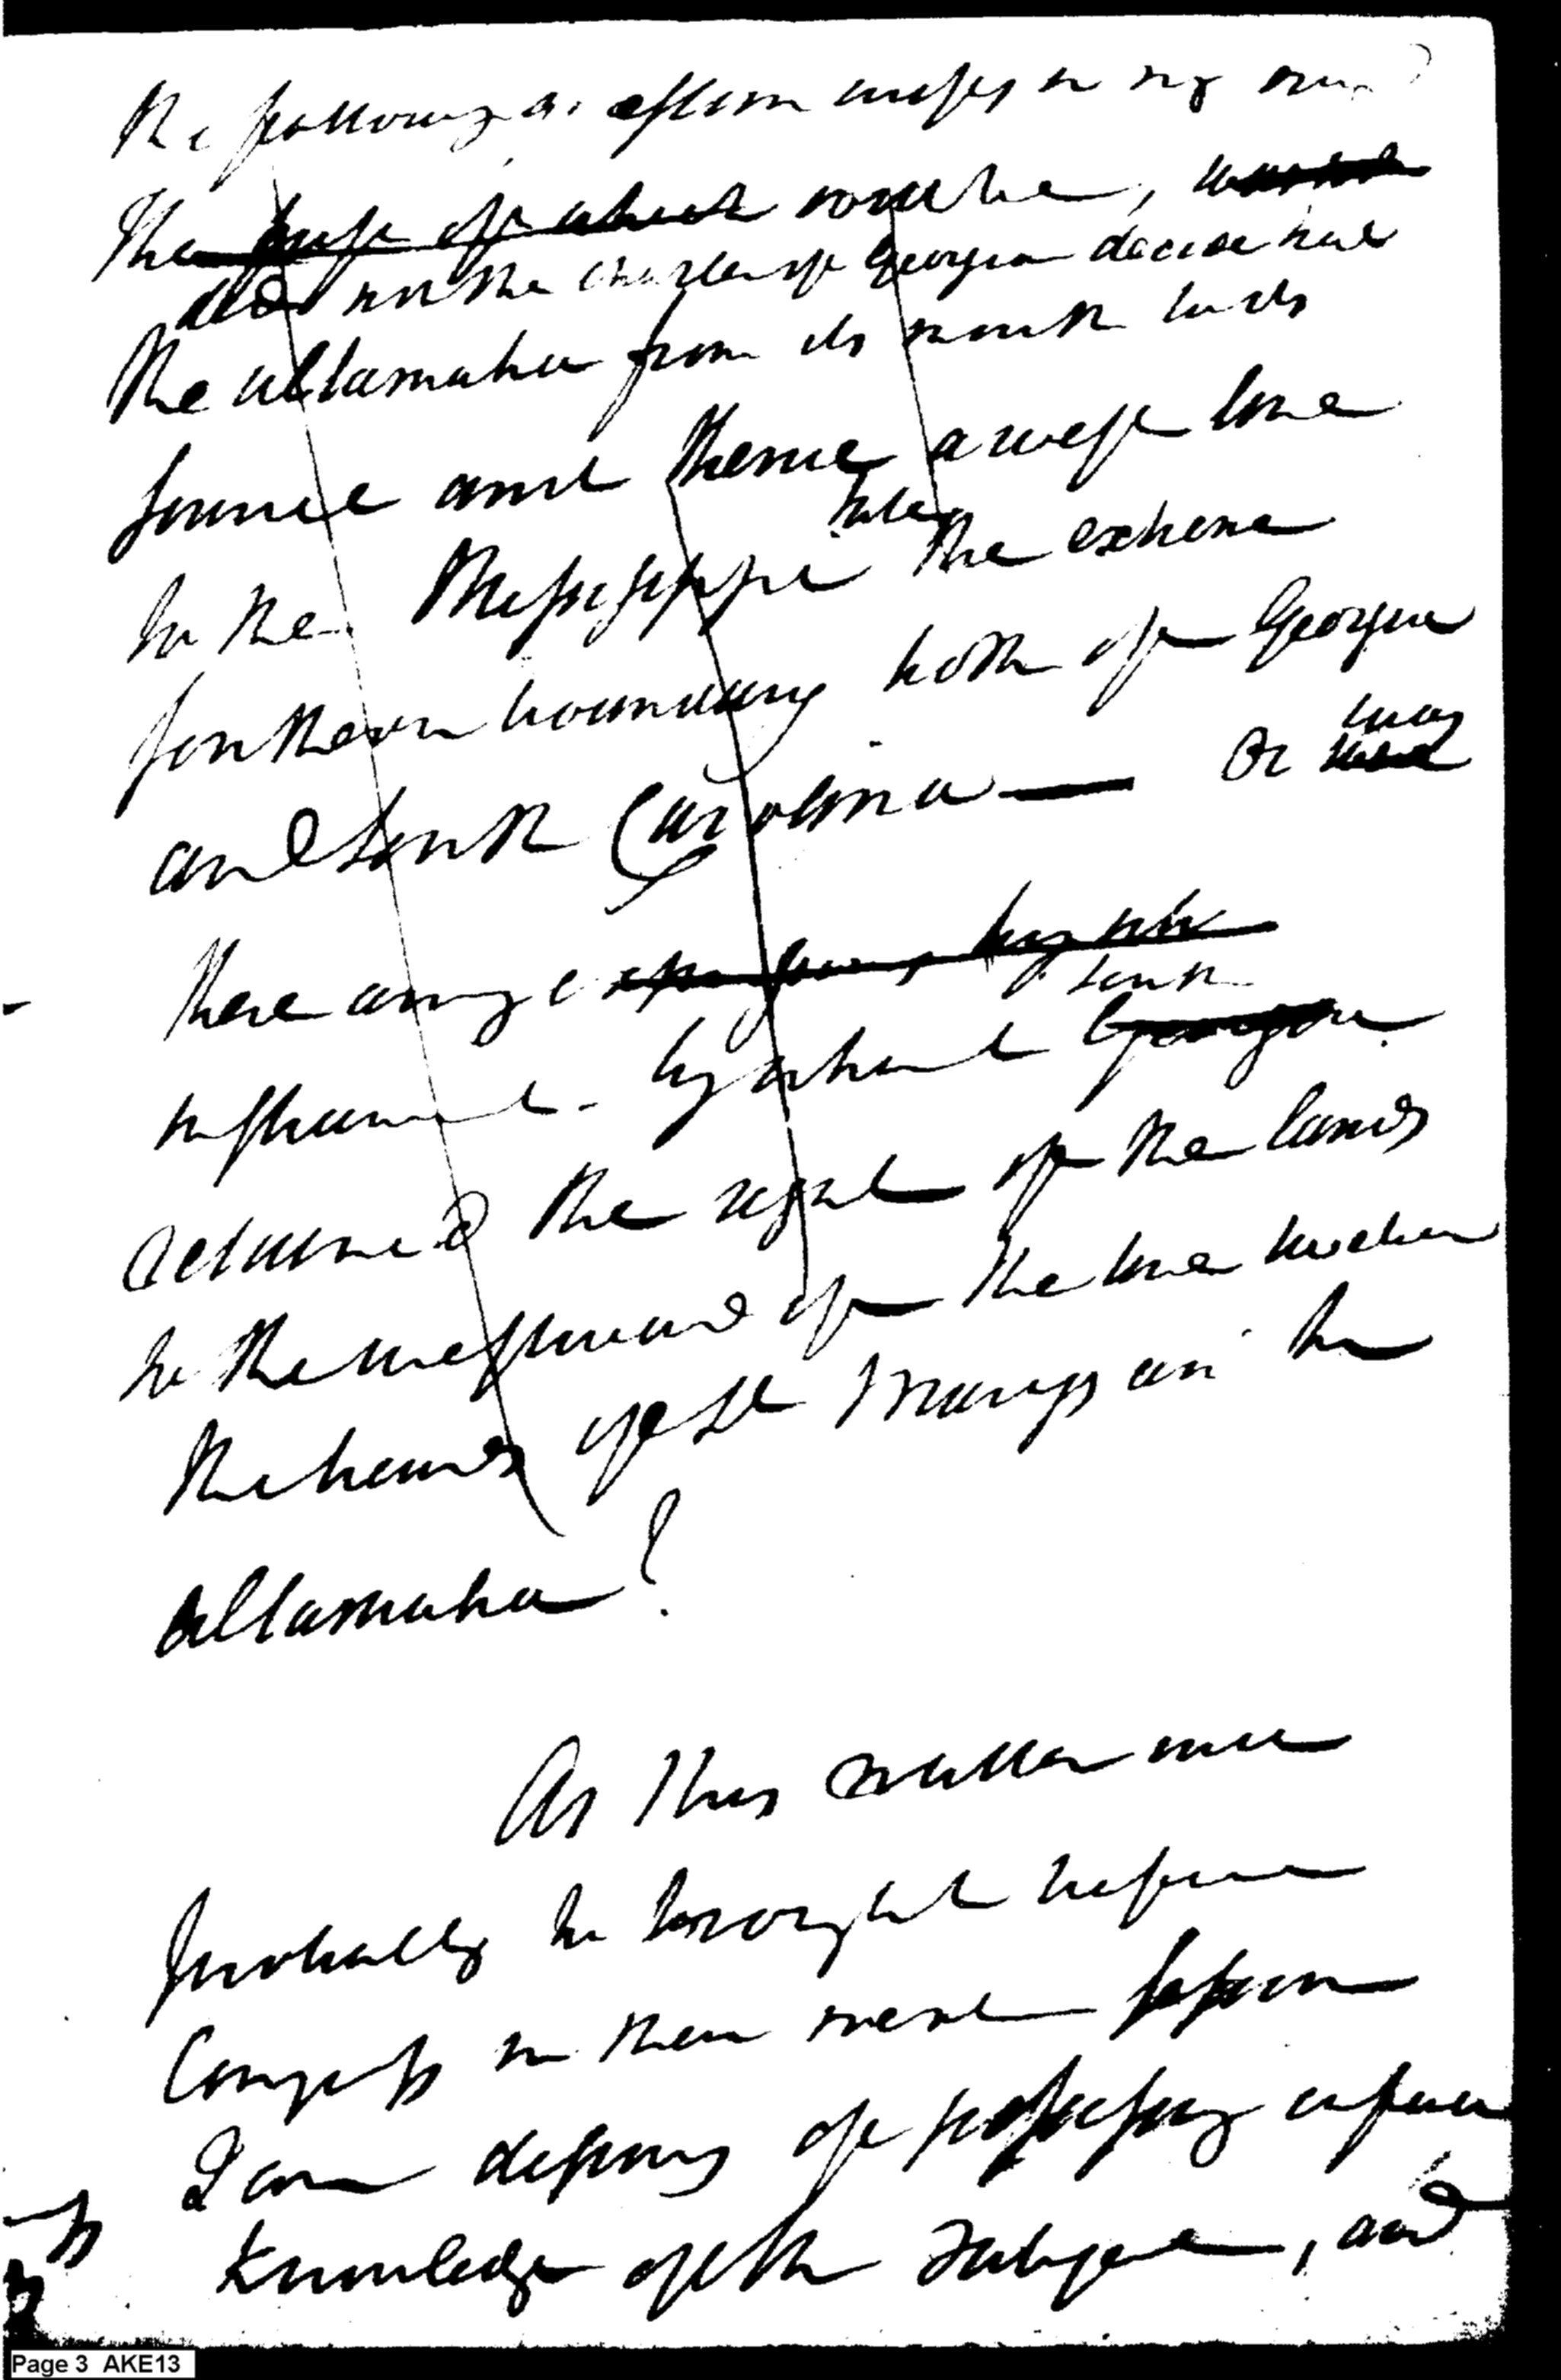 The following a question arises in my mind
The first of which would be,
did not the charter of Georgia declare that
the altamaha from its mouth to its
source and thence a west line
to the Missisippi the extreme
southern boundary both of Georgia
and South Carolina — Or was
there any
South
instrument by which Georgia
retained the right of the lands
to the westward of the line between
the heads of St Marys and the
altamaha?
As this matter will
probably be brought before
Congress in their next session
I am desirous of possessing a full
knowledge of the subject, and
Page 3 AKE13